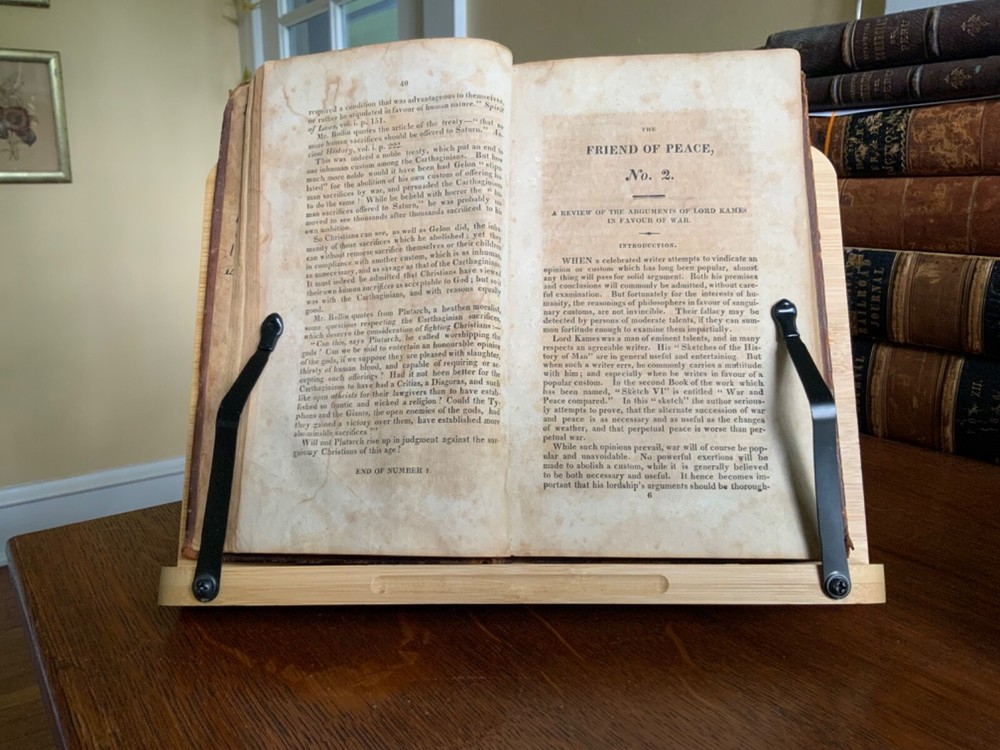 40
required a condition that was advantageous to themselves,
or rather he stipulated in favour of human nature." Spirit
of Laws, vol. i. p. 151.
Mr. Rollin quotes the article of the treaty—"that no
more human sacrifices should be offered to Saturn." An-
cient History, vol. i. p. 222.
This was indeed a noble treaty, which put an end to
one inhuman custom among the Carthaginians. But how
much more noble would it have been had Gelon "stipu-
lated" for the abolition of his own custom of offering hu-
man sacrifices by war, and persuaded the Carthaginians
to do the same! While he beheld with horror the "hu-
man sacrifices offered to Saturn," he was probably un-
moved to see thousands after thousands sacrificed to his
own ambition.
So Christians can see, as well as Gelon did, the inhu-
manity of those sacrifices which he abolished; yet they
can without remorse sacrifice themselves or their children
in compliance with another custom, which is as inhuman,
as unnecessary, and as savage as that of the Carthaginians.
It must indeed be admitted that Christians have viewed
their own human sacrifices as acceptable to God; but so it
was with the Carthaginians, and with reasons equally
good.
Mr. Rollin quotes from Plutarch, a heathen moralist,
some questions respecting the Carthaginian sacrifices,
which deserve the consideration of fighting Christians:—
"Can this, says Plutarch, be called worshipping the
gods? Can we be said to entertain an honourable opinion
of the gods, if we suppose they are pleased with slaughter,
thirsty of human blood, and capable of requiring or ac-
cepting such offerings? Had it not been better for the
Carthaginians to have had a Critias, a Diagoras, and such
like open atheists for their lawgivers than to have estab-
lished so frantic and wicked a religion? Could the Ty-
phons and the Giants, the open enemies of the gods, had
they gained a victory over them, have established more
abominable sacrifices?"
Will not Plutarch rise up in judgment against the san-
guinary Christians of this age?
END OF NUMBER 1.
THE
FRIEND OF PEACE,
No. 2.
A REVIEW OF THE ARGUMENTS OF LORD KAMES
IN FAVOUR OF WAR.
INTRODUCTION.
WHEN a celebrated writer attempts to vindicate an
opinion or custom which has long been popular, almost
any thing will pass for solid argument. Both his premises
and conclusions will commonly be admitted, without care-
ful examination. But fortunately for the interests of hu-
manity, the reasonings of philosophers in favour of sangui-
nary customs, are not invincible. Their fallacy may be
detected by persons of moderate talents, if they can sum-
mon fortitude enough to examine them impartially.
Lord Kames was a man of eminent talents, and in many
respects an agreeable writer. His "Sketches of the His-
tory of Man" are in general useful and entertaining. But
when such a writer errs, he commonly carries a multitude
with him; and especially when he writes in favour of a
popular custom. In the second Book of the work which
has been named, "Sketch VI" is entitled "War and
Peace compared." In this "sketch" the author serious-
ly attempts to prove, that the alternate succession of war
and peace is as necessary and as useful as the changes
of weather, and that perpetual peace is worse than per-
petual war.
While such opinions prevail, war will of course be pop-
ular and unavoidable. No powerful exertions will be
made to abolish a custom, while it is generally believed
to be both necessary and useful. It hence becomes im-
portant that his lordship's arguments should be thorough-
6
PERU
RAILROAD
JOURNAL
XII.